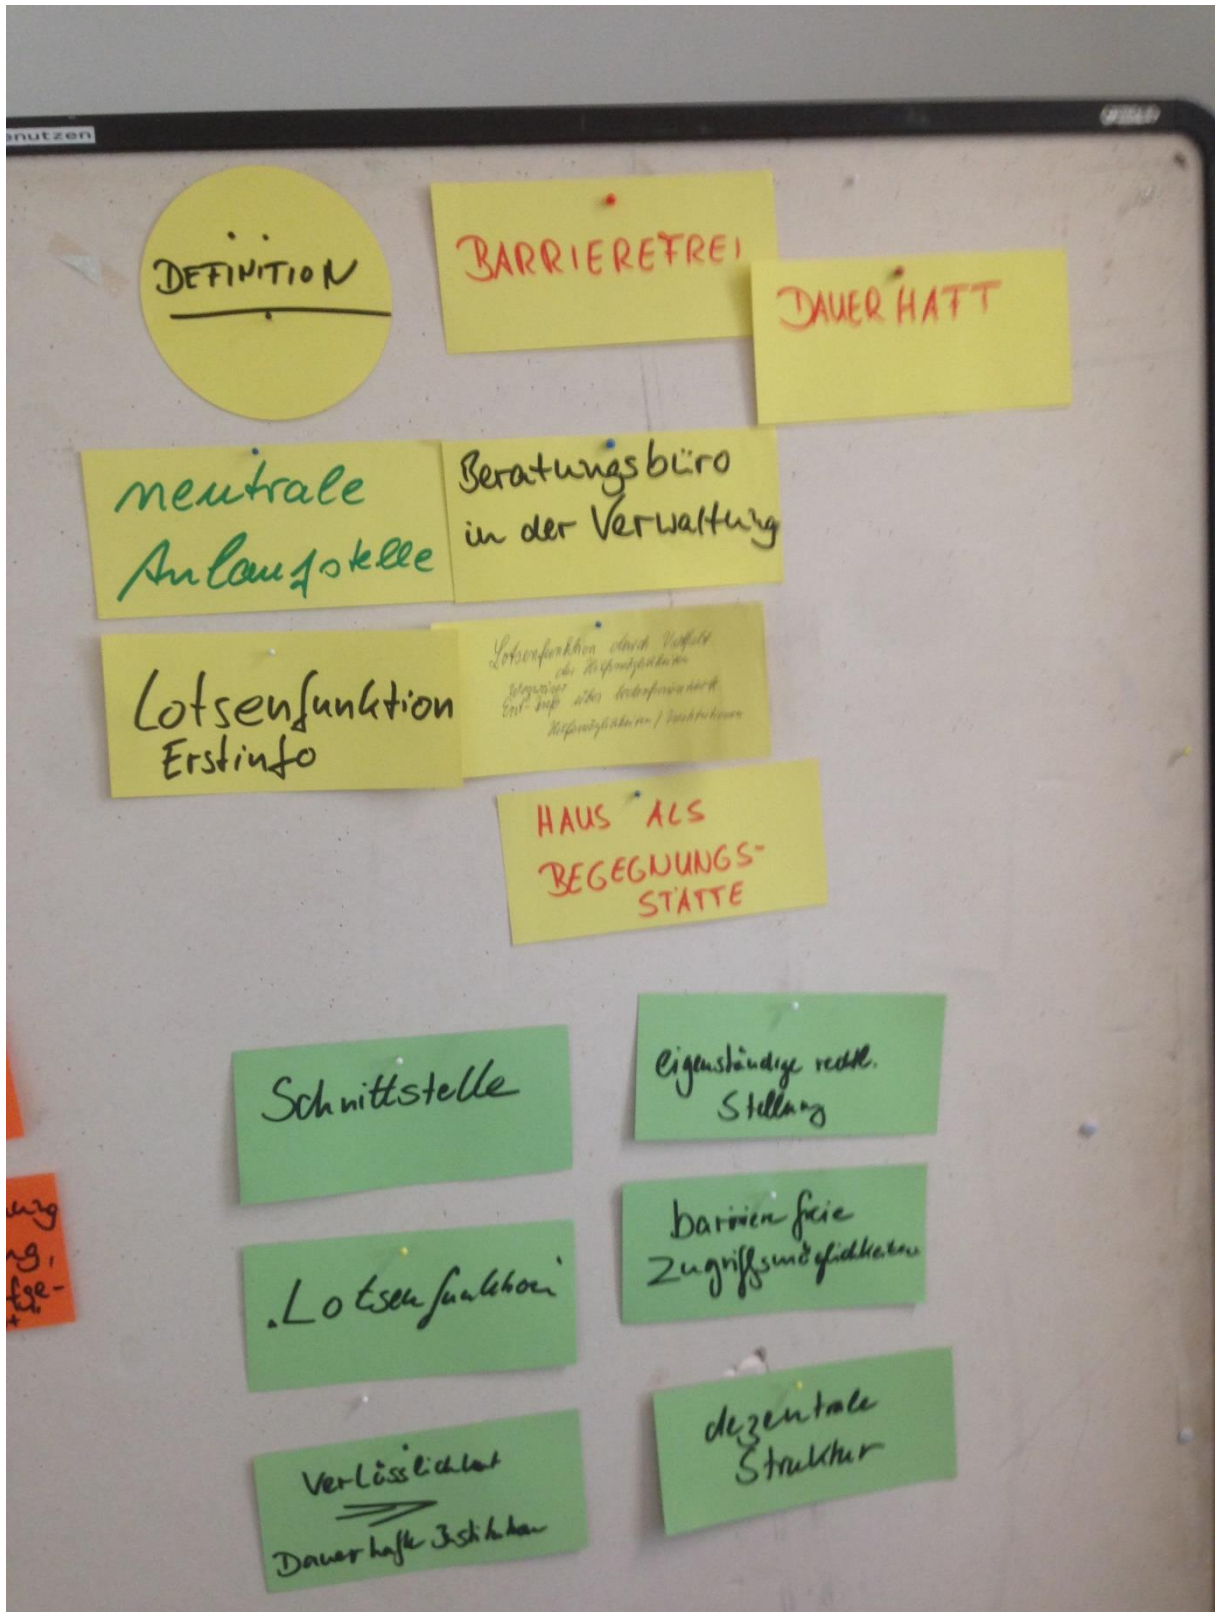 nutzen
DEFINITION
BARRIEREFREI
DAUERHAFT
neutrale
Anlaufstelle
Beratungsbüro
in der Verwaltung
Lotsenfunktion
Erstinfo
Lotsenfunktion durch Vielfalt
der Hilfsmöglichkeiten
Wegweiser
Erst-Info über
Hilfsmöglichkeiten / Institutionen
HAUS ALS
BEGEGNUNGS-
STÄTTE
Schnittstelle
eigenständige rechtl.
Stellung
.Lotsenfunktion
barriere freie
Zugriffsmöglichkeiten
Verlässlichkeit
Dauerhafte Institution
dezentrale
Struktur
ung
ng,
fge-